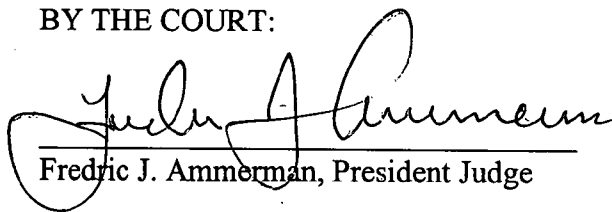 BY THE COURT:
Fredric J. Ammerman
Fredric J. Ammerman, President Judge